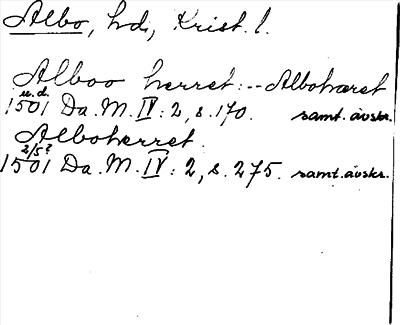 Albo, hd, Krist. l.
Alboo herret: -- Albohæret
u.d.
1501 Da. M. IV: 2, s. 170. samt. avskr.
Alboherret.
2/5?
1501 Da. M. IV: 2, s. 275. samt. avskr.